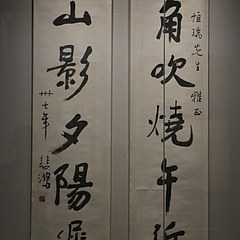 恒瑞先生 雅正
角吹燒午
山影夕陽
卅七年 悲鴻